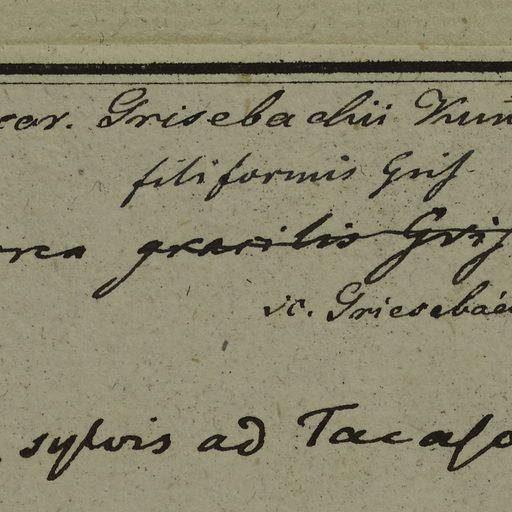 cor. Grisebachii Kun
filiformis Gris
gracilis Gris
sc. Griesebac
sylvis ad Tacaso